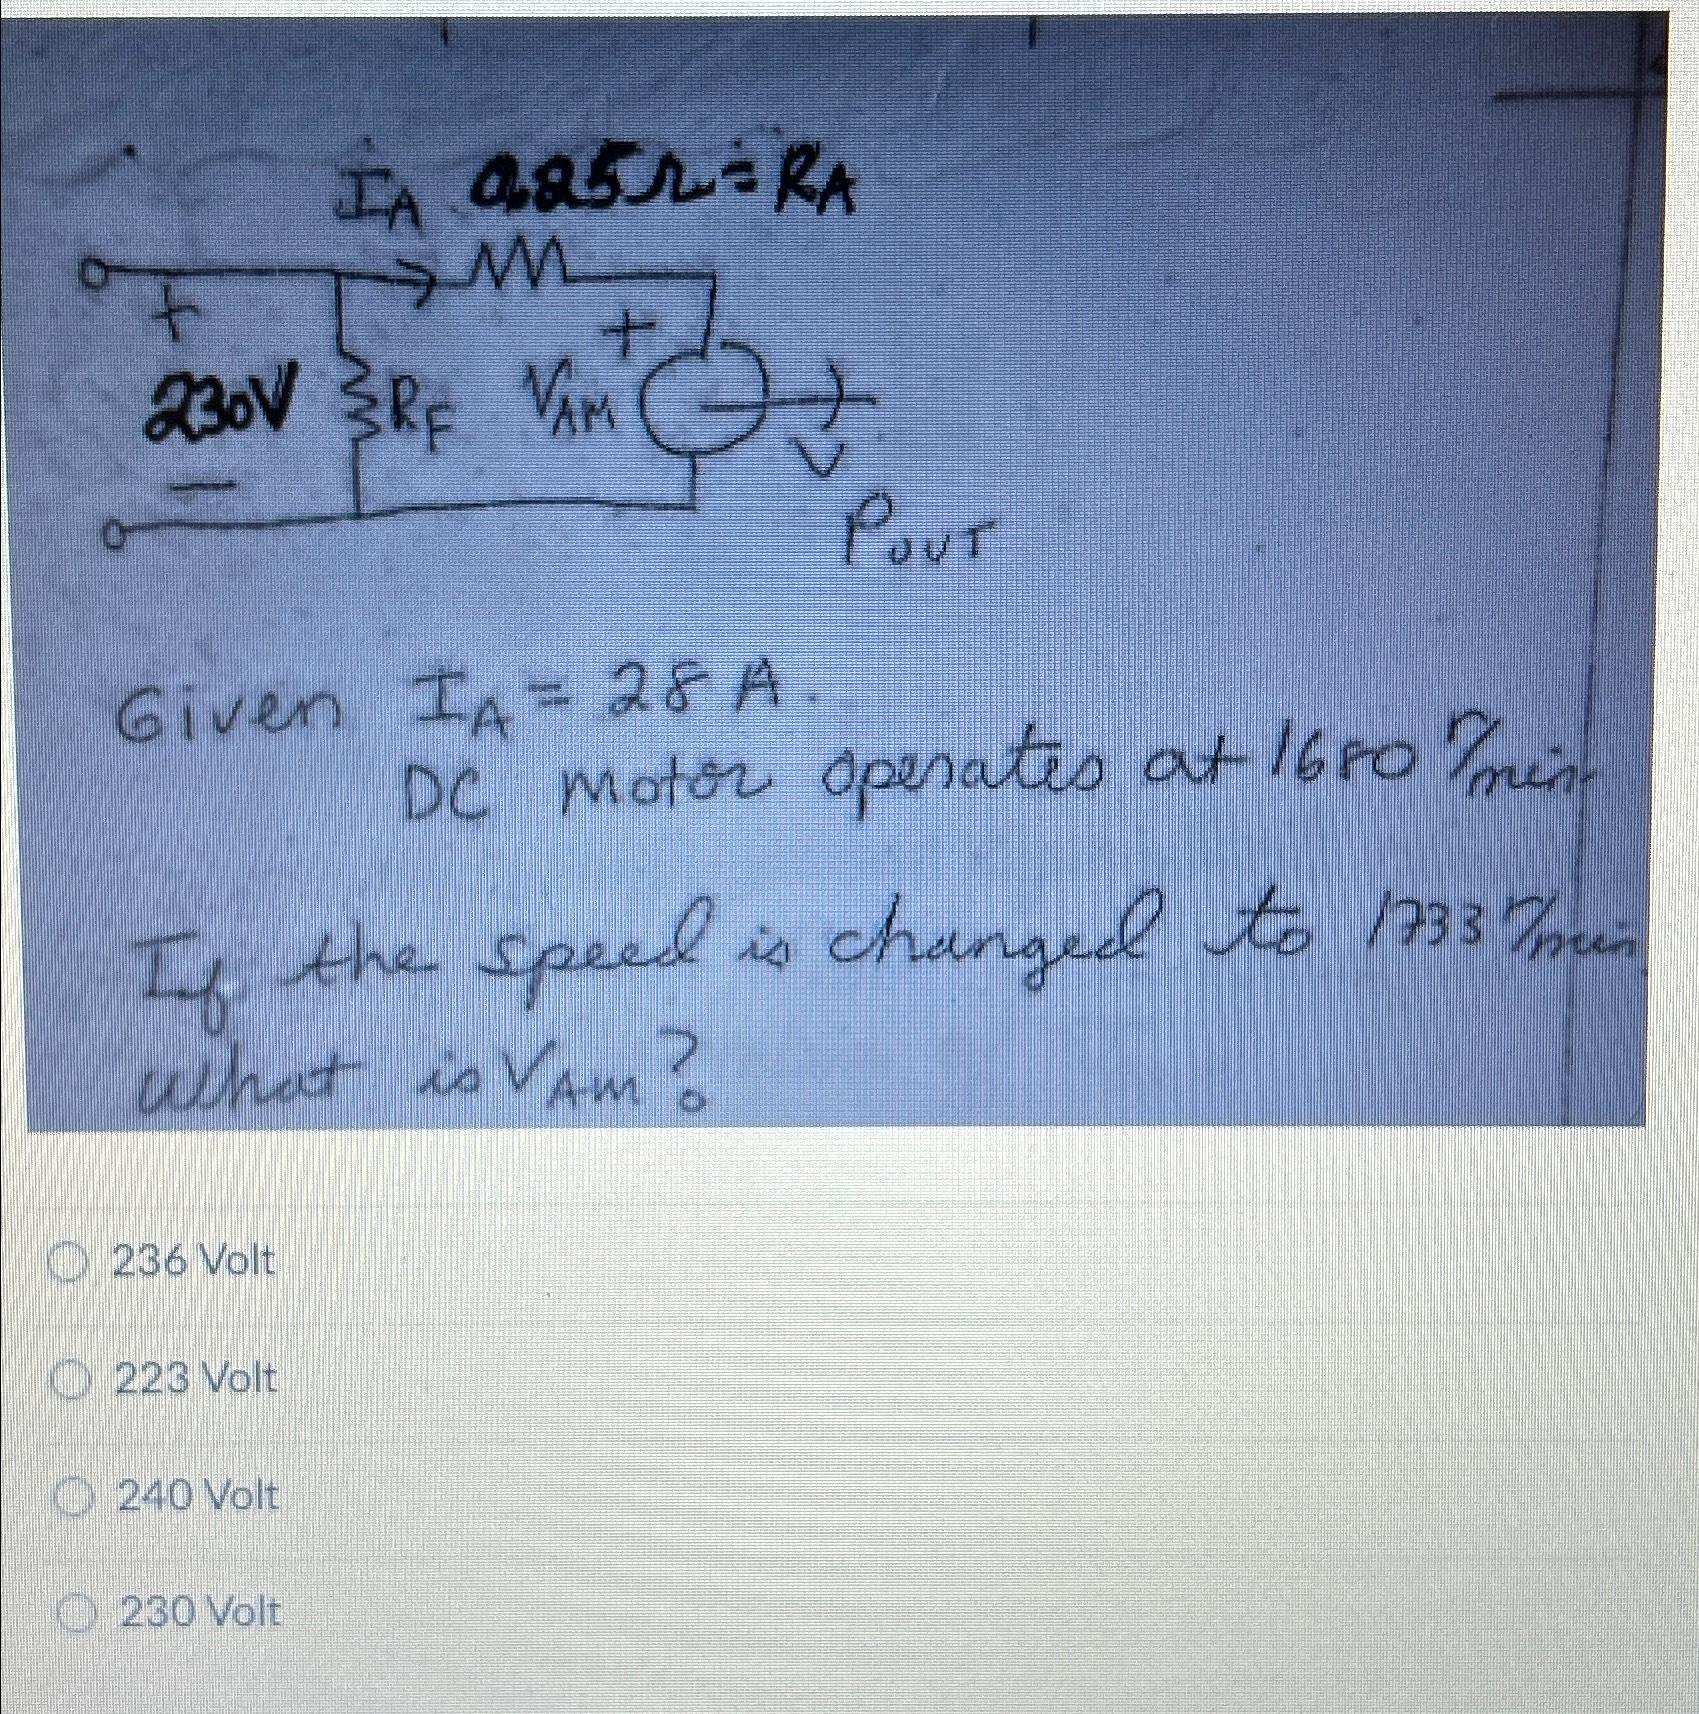 IA 0.25Ω = RA
+
+
230V RF VAM
—
POUT
Given IA = 28 A.
DC motor operates at 1680 r/min.
If the speed is changed to 1733 r/min
what is VAM?
236 Volt
223 Volt
240 Volt
230 Volt